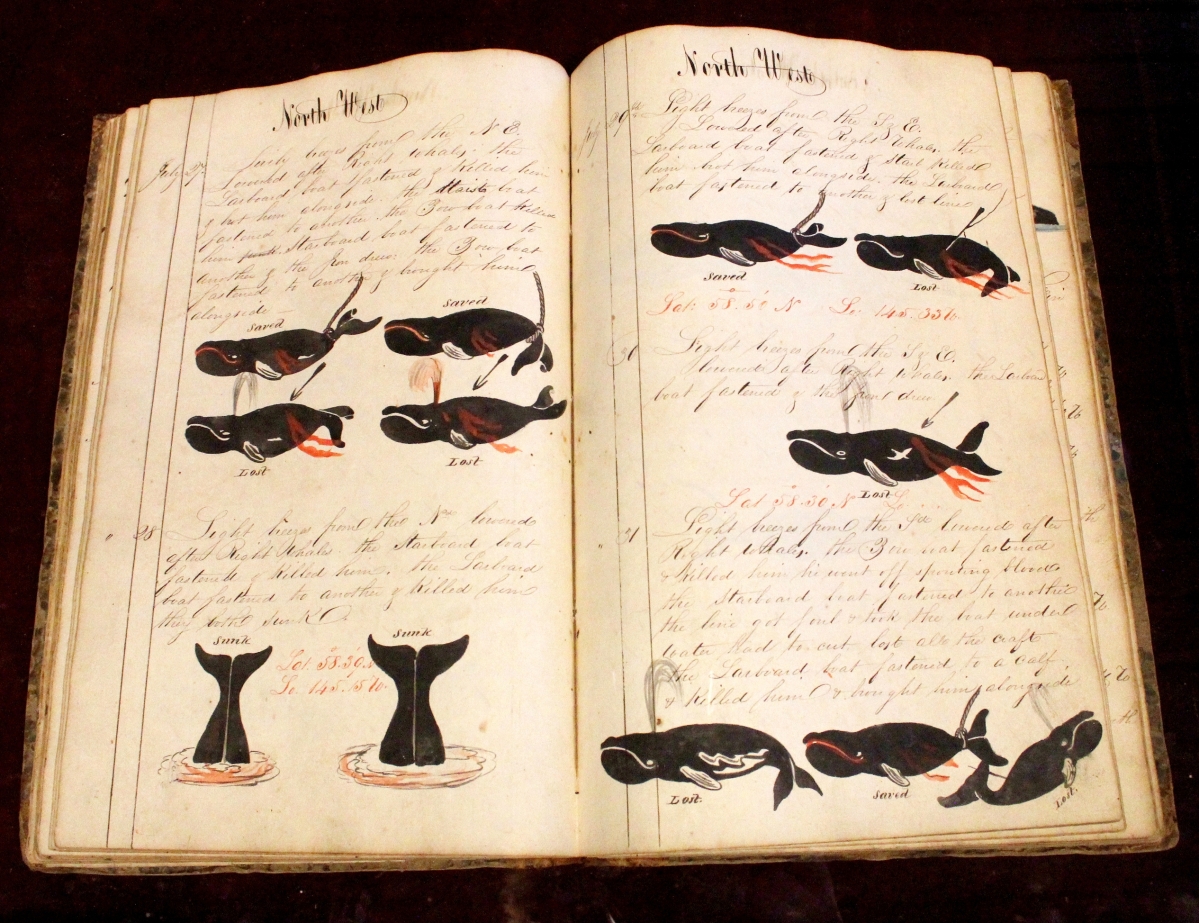 North West
July 27
breezes from the N E.
Lowered after Right Whales. the
Larboard boat fastened & Killed him
& got him alongside. the Waist boat
fastened to another. the Bow boat Killed
him Starboard boat fastened to
another & the Iron drew. the Bow boat
fastened to another & brought him
alongside
Saved
Saved
Lost
Lost
" 28
Light breezes from the lowered
after Right Whales. the Starboard boat
fastened & Killed him. the Larboard
boat fastened to another & Killed him
they both Sunk
Sunk
Sunk
Lat 58.30. N
Lo. 145.15 W.
North West
July 29th
Light breezes from the S & E.
Lowered after Right Whales. the
Larboard boat fastened & Killed
him got him alongside. the Larboard
boat fastened to another & lost line
Saved
Lost
Lat. 58. 50 N Lo. 145. 33 W.
30
Light breezes from the S & E.
Lowered after Right Whales. the Larboard
boat fastened & the Iron drew
Lost
Lat 58.30. N Lo
" 31
Light breezes from the lowered after
Right Whales. the Bow boat fastened
& Killed him he went off spouting blood
the Starboard boat fastened to another
the line got foul & took the boat under
water had to cut. lost all the craft
the Larboard boat fastened to a calf.
& Killed him & brought him alongside
Lost.
Saved
Lost.